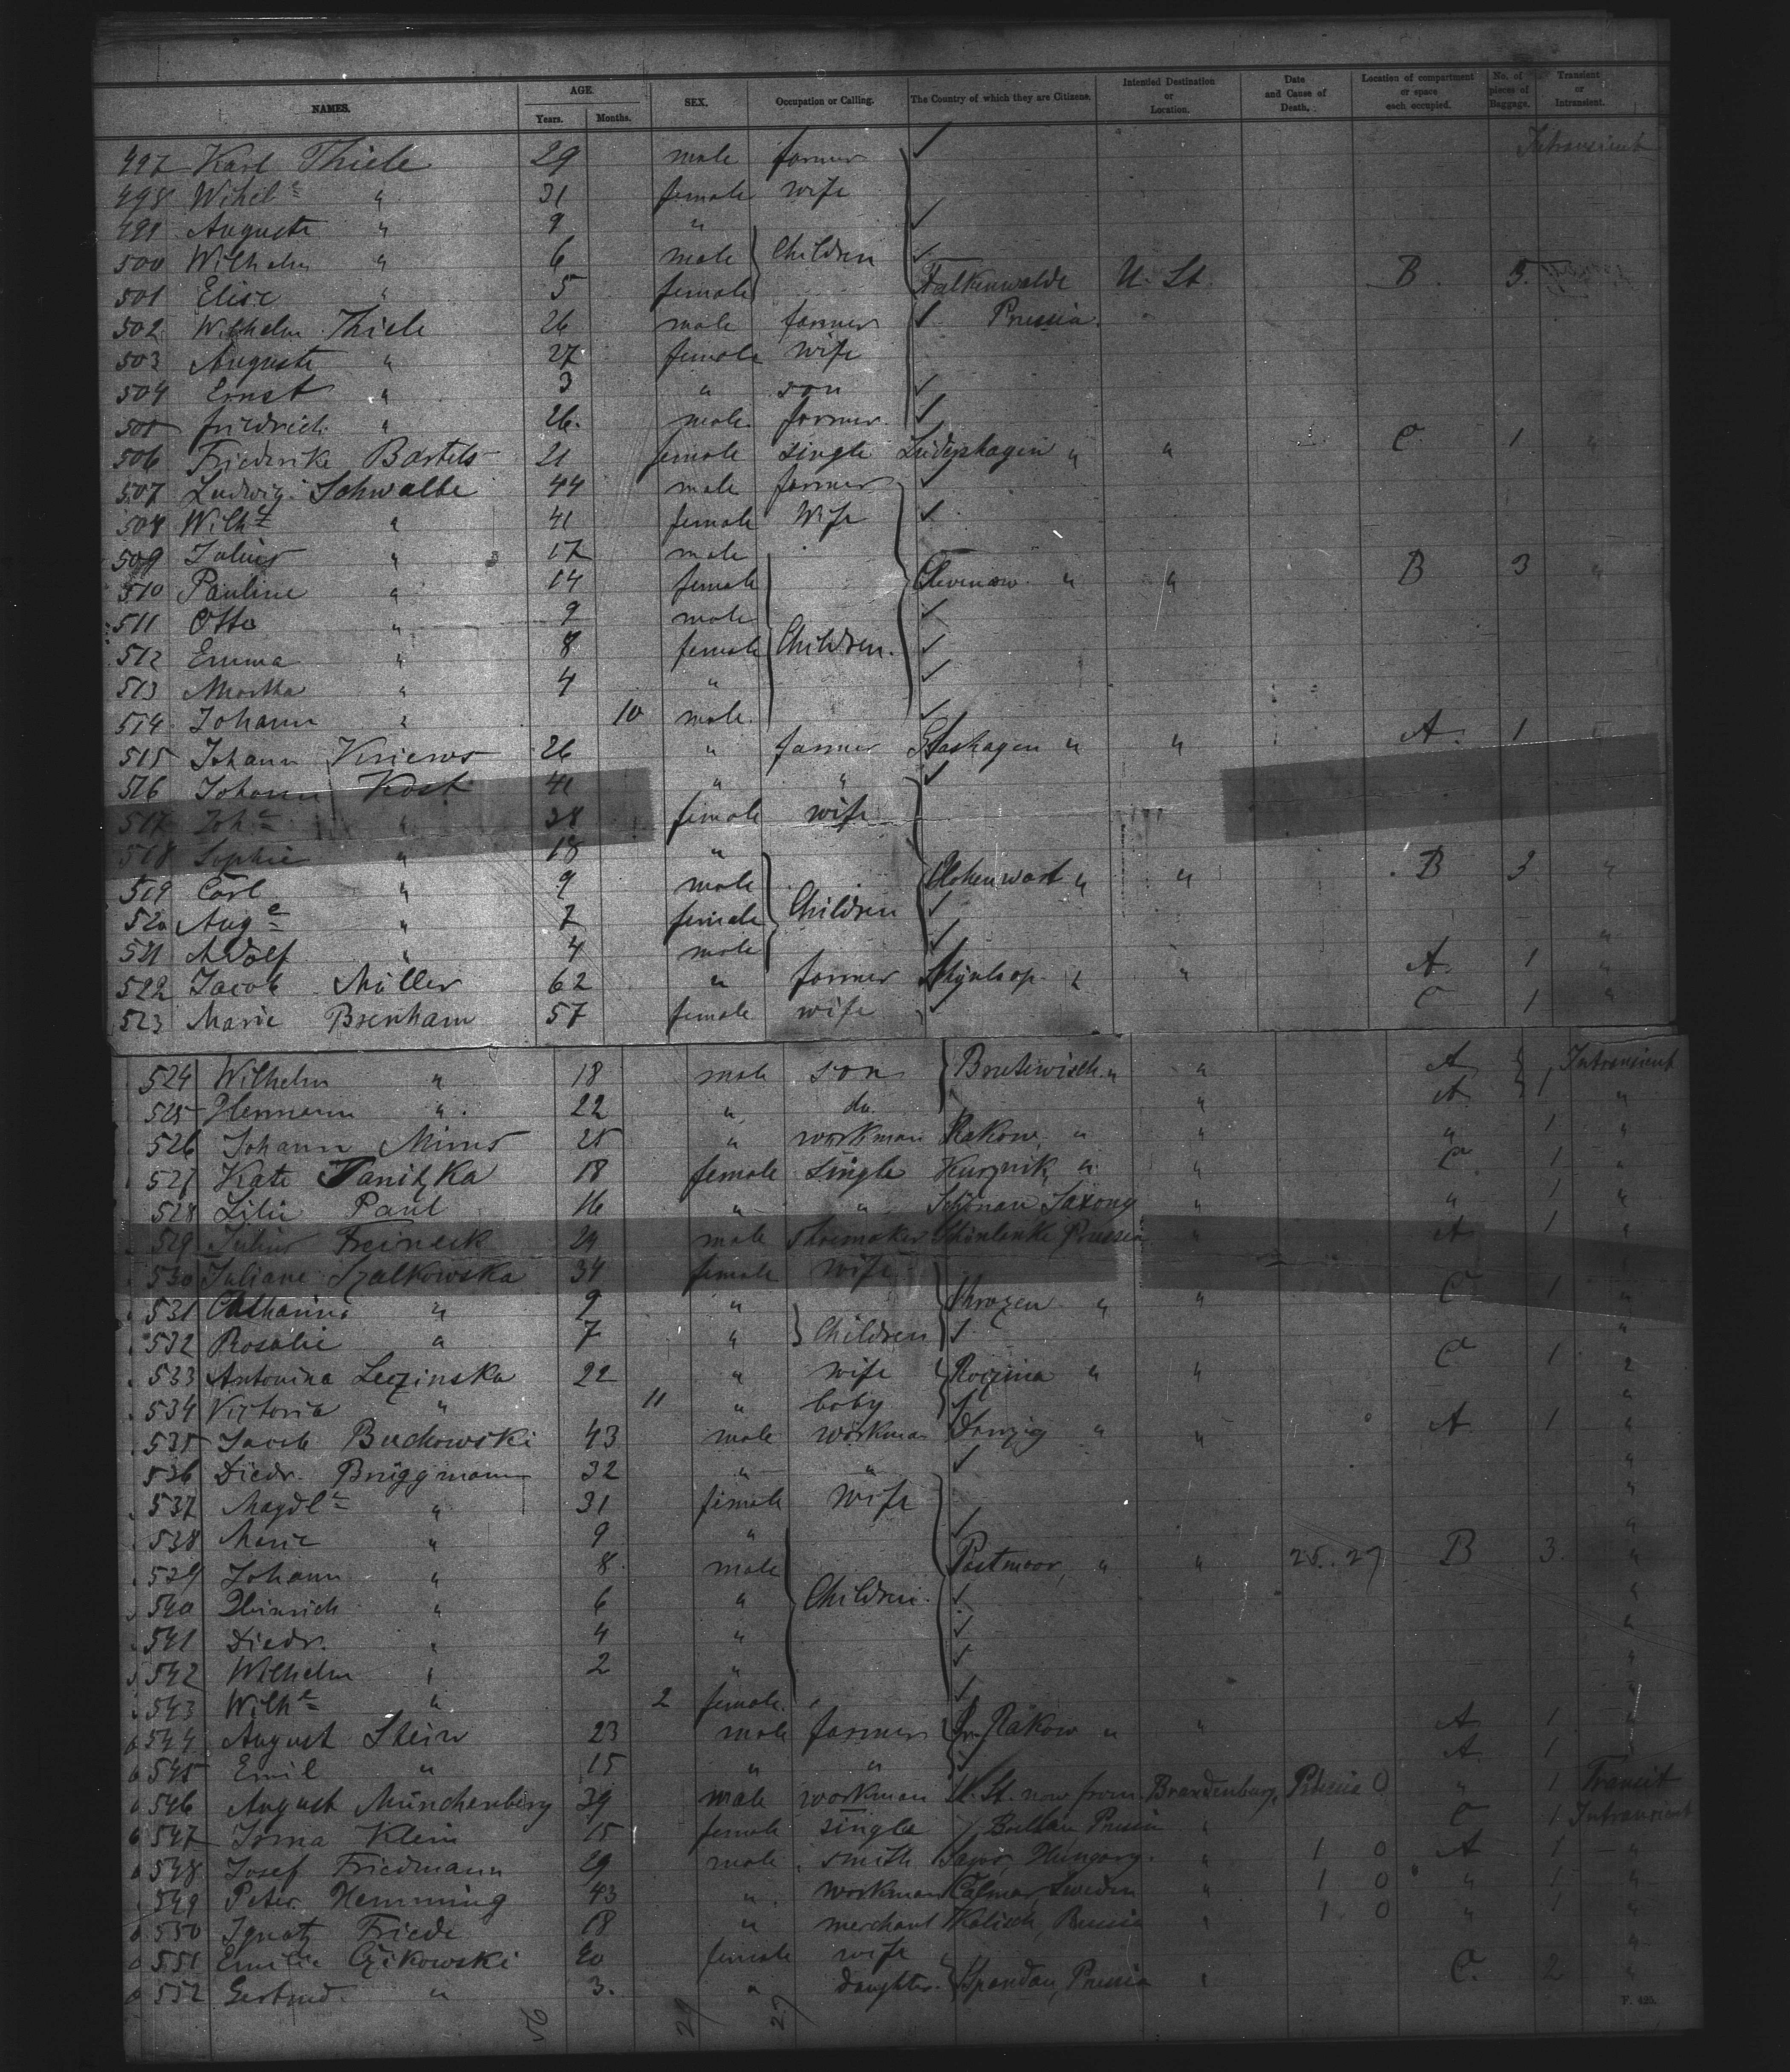 NAMES. AGE. Years. Months. SEX. Occupation or Calling. The Country of which they are Citizens. Intended Destination or Location. Date and Cause of Death. Location of compartment or space each occupied. No. of pieces of Baggage. Transient or Intransient.
497 Karl Thiele 29 male farmer ✓ Intransient
498 Wihel͏e " 31 female wife
499 Auguste " 9 " ✓
500 Wilhelm " 6 male Children ✓
501 Elise " 5 female Falkenwalde U. St. B. 5.
502 Wilhelm Thiele 26 male farmer ✓ Prussia.
503 Auguste " 27 female wife
504 Ernst " 3 " son ✓
505 Friedrich " 26. male farmer ✓
506 Friederike Bartels 21 female single " " C. 1 "
507 Ludwig Schwalbe 44 male farmer ✓
508 Wilhe " 41 female Wife ✓
509 Julius " 17 male
510 Pauline " 14 female " " B 3 "
511 Otto " 9 male ✓
512 Emma " 8 female Children. ✓
513 Martha " 4 " ✓
514 Johann " 10 male ✓
515 Johann 26 " farmer " " A. 1 "
516 Johann Kost 41 " " ✓
517 Johe " 38 female wife
518 Sophie " 18 "
519 Carl " 9 male Hohenwart " " B 3 "
520 Auge " 7 female Children ✓
521 Adolf " 4 male ✓ "
522 Jacob Müller 62 " farmer " " A. 1 "
523 Marie Brenham 57 female wife ✓ C 1 "
524 Wilhelm " 18 male son " " A 1 Intransient
525 Hermann " 22 " do. " A 1 "
526 Johann Mirus 25 " workman Rakow, " " " 1 "
527 Kate 18 female single Kurznik " " C 1 "
528 Lilli Paul 16 " " Schönau Saxony " " 1 "
529 Julius Freineck 29 male Shoemaker Schönlanke Prussia " A 1 "
530 Juliane Szalkowska 34 female Wife
531 Catharina " 9 " " " C 1 "
532 Rosalie " 7 " Children ✓ "
533 Antonina Leczinska 22 " wife " " C 1 "
534 Victoria " 11 " baby ✓ "
535 Jacob Buchowski 43 male workman Danzig " " A 1 "
536 Diedr. Brüggmann 32 " " ✓ "
537 Magdle " 31 female Wife "
538 Marie " 9 " ✓ "
539 Johann " 8. male Postmoor, " " 25. 27 B 3. "
540 Heinrich " 6 " Children. ✓ "
541 Diedr. " 4 " ✓ "
542 Wilhelm " 2 " ✓ "
543 Wilhe " 2 female. ✓ "
544 August Stein 23 male farmer Gr. Rakow " " A 1 "
545 Emil " 15 " " ✓ A. 1
546 August Münchenberg 39 male workman U. St. now from Brandenburg, Prussia 0 " 1 Transit
547 Irma Klein 15 female single Prussia " C 1 Intransient
548 Josef Friedmann 29 male smith Hungary. " 1 0 A 1 "
549 Peter Hemming 43 " workman Calmar, Sweden " 1 0 " 1 "
550 Ignatz Friede 18 " merchant Kalisch, Russia " 1 0 " 1 "
551 Emilie Czikowski 20 female wife "
552 Gertrud. " 3. " daughter. Spandau, Prussia " C. 2 "
56 29 27
F. 425.